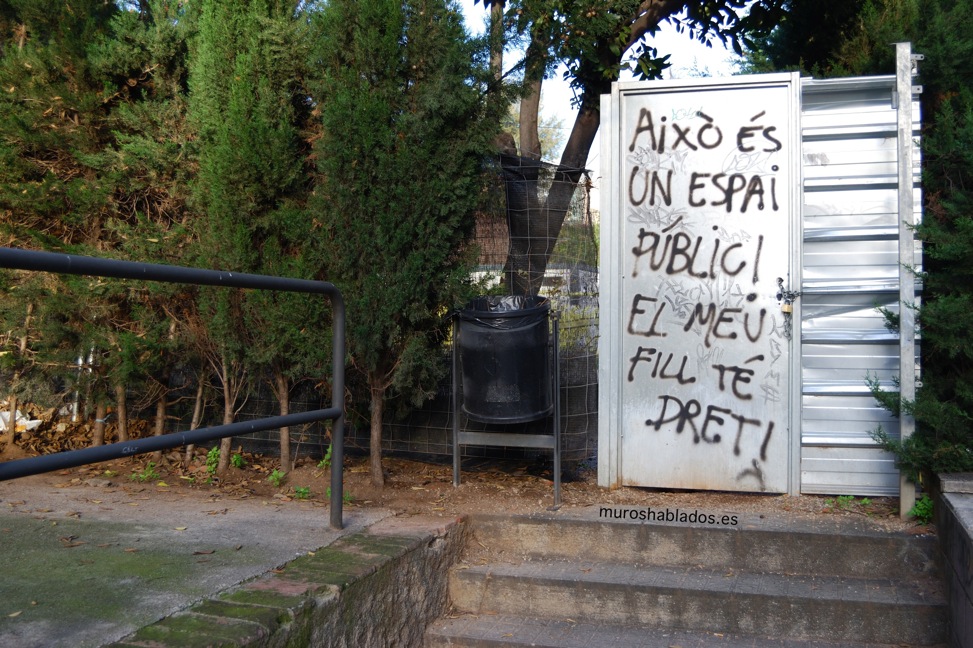 Això és
UN ESPAi
PÚBLIC!
EL MEU
FILL TÉ
DRET!
muroshablados.es